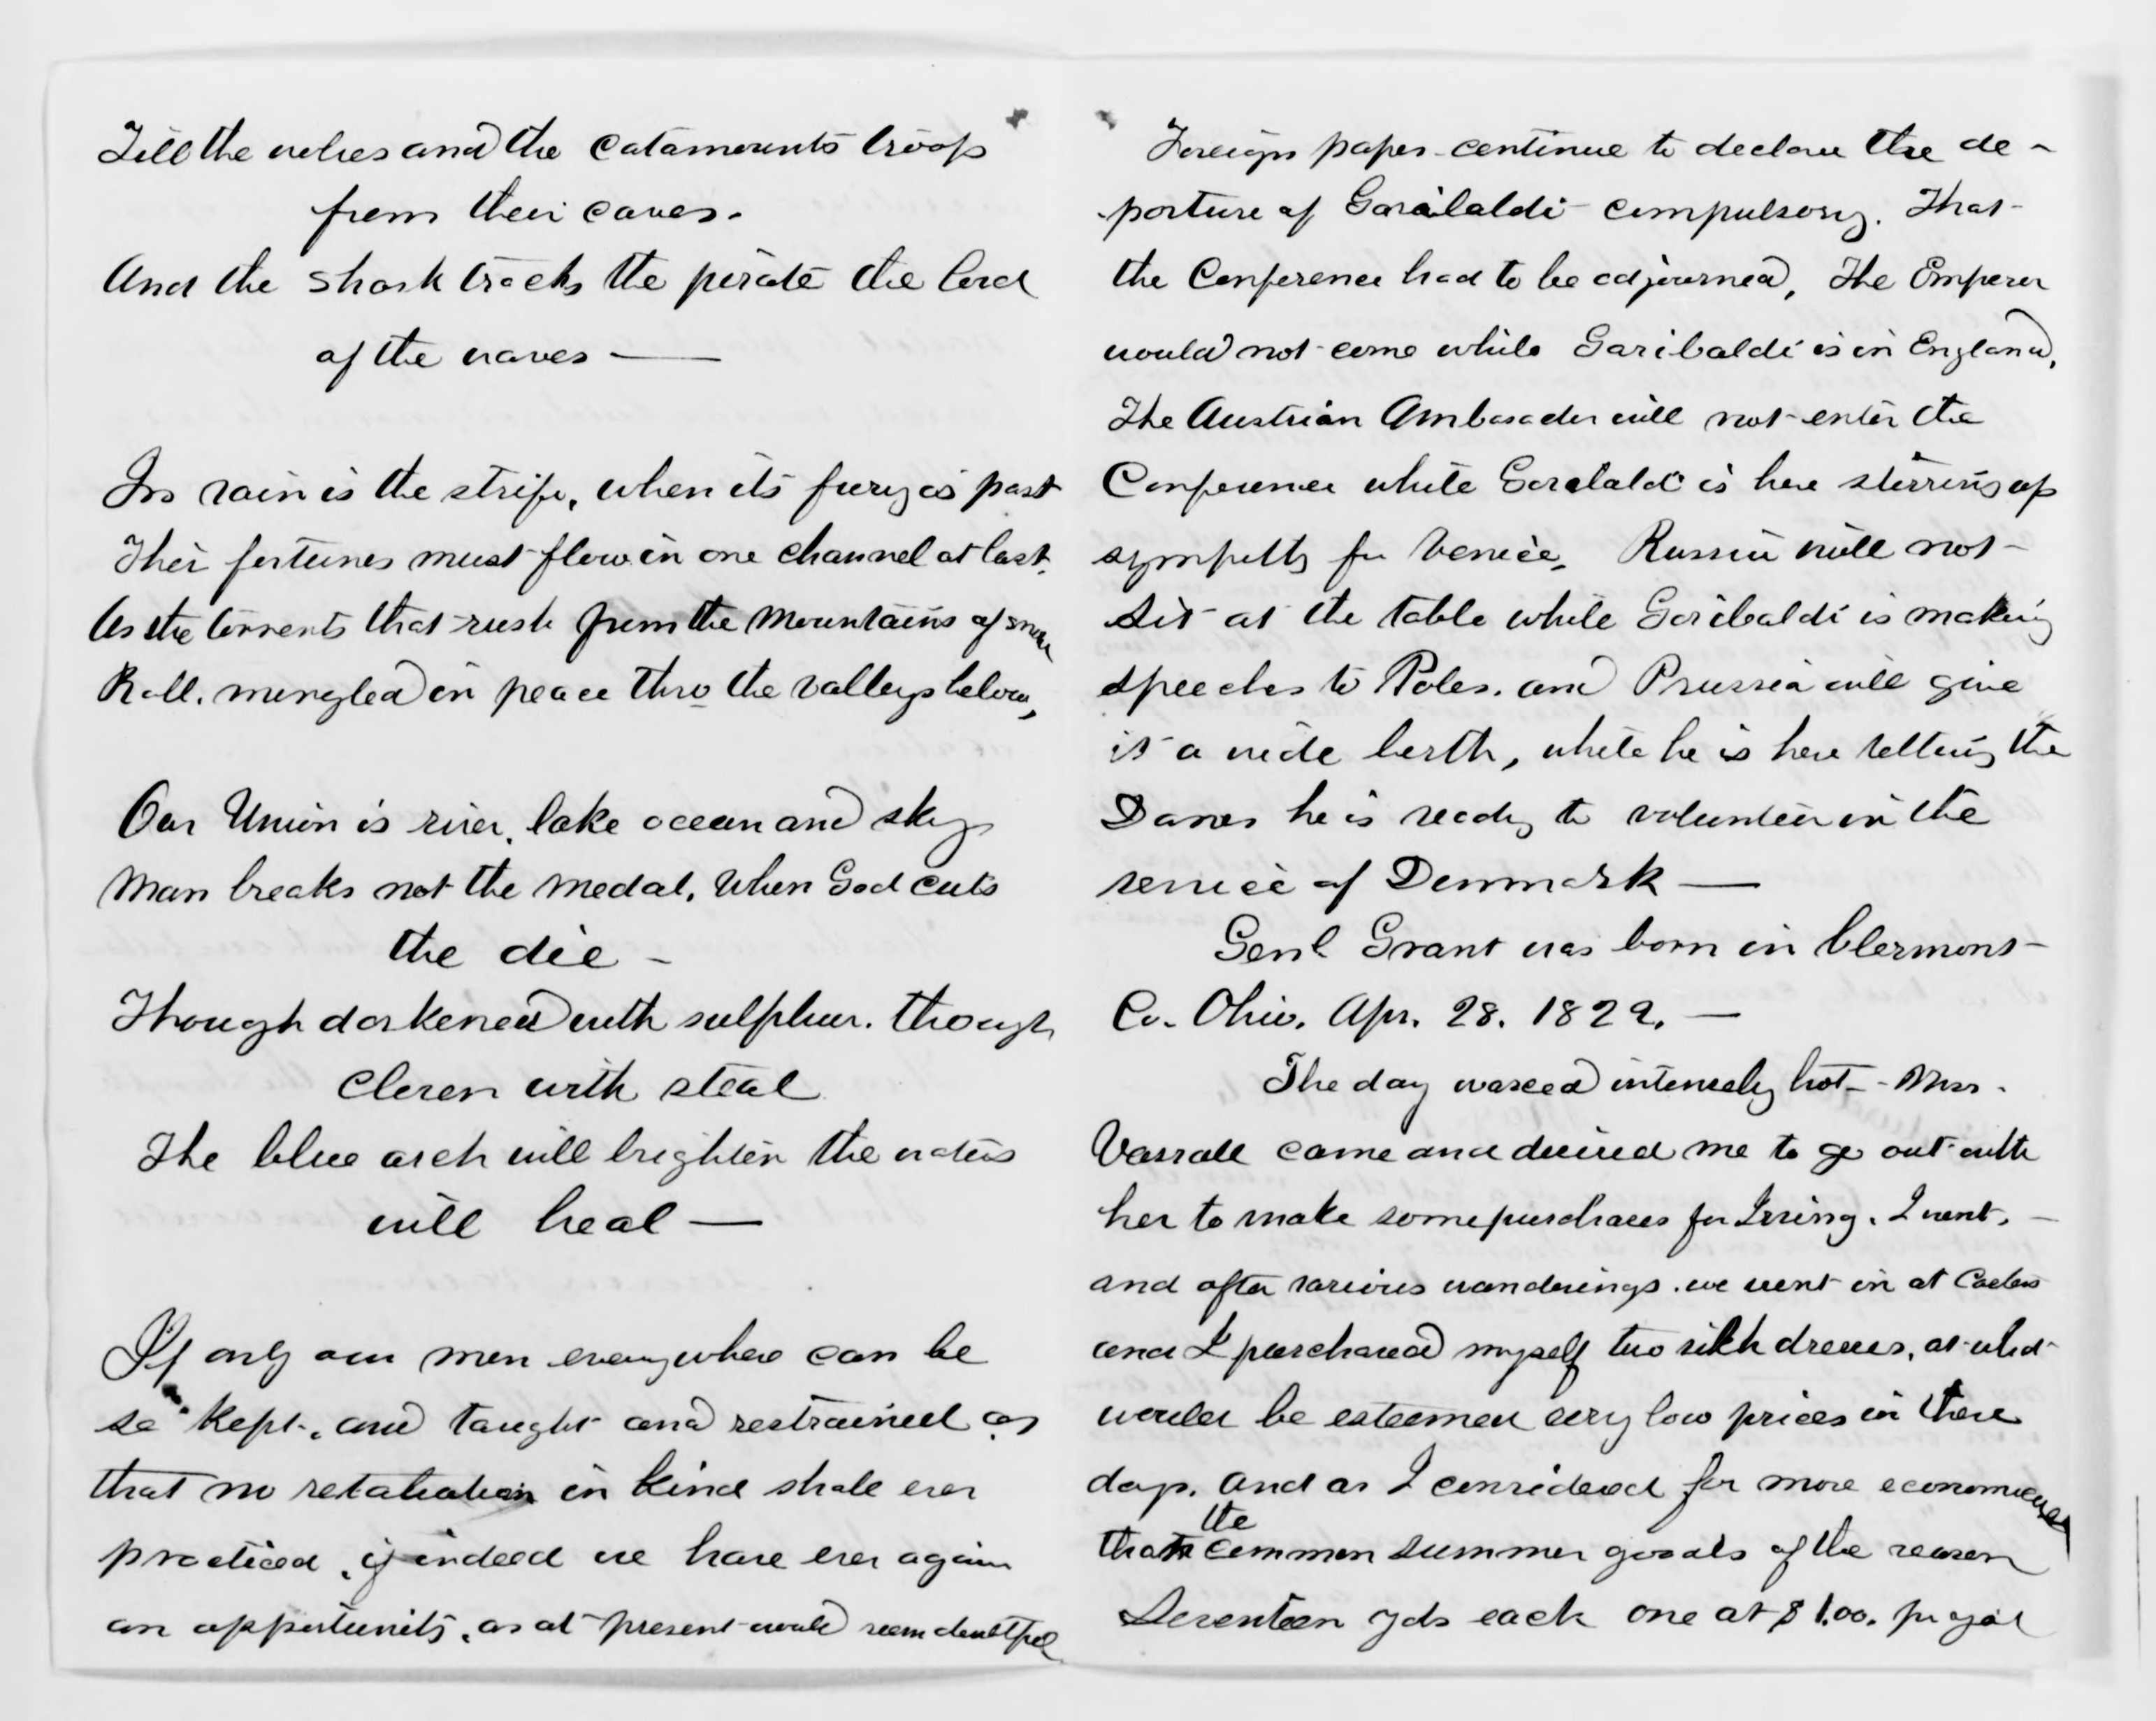 Till the wolves and the catamounts troop
from their caves.
And the shark tracks the pirate the lord
of the waves —
In vain is the strife, when its fury is past
Their fortunes must flow in one channel at last.
As the torrents that rush from the mountains of snow
Roll. mingled in peace thro the valleys below,
Our Union is river, lake ocean and sky
Man breaks not the medal, when God cuts
the die -
Though darkened with sulphur. though
cloven with steel
The blue arch will brighten the waters
will heal —
If only our men everywhere can be
so kept, and taught and restrained as
that no retaliation in kind shall ever
practiced, if indeed we have ever again
an opportunity, as at present would seem doubtful
Foreign paper continue to declare the de-
parture of Garibaldi compulsory. That
the Conference had to be adjourned, The Emperor
would not come while Garibaldi is in England,
The Austrian Ambasador will not enter the
Conference while Garibaldi is here stirring up
sympathy for Venice, Russia will not
sit at the table while Garibaldi is making
speeches to Poles. and Prussia will give
it a wide berth, while he is here telling the
Danes he is ready to volunteer in the
service of Denmark —
Genl Grant was born in Clermont
Co. Ohio. Apr. 28. 1822. —
The day waxed intensely hot - Mrs.
Vassall came and desired me to go out with
her to make some purchases for Irving. I went. —
and after various wanderings. we went in at
and I purchased myself two silk dresses, at what
would be esteemed very low prices in these
days. and as I considered far more economical
than the common summer goods of the season
Seventeen yds each one at $1.00. per yard